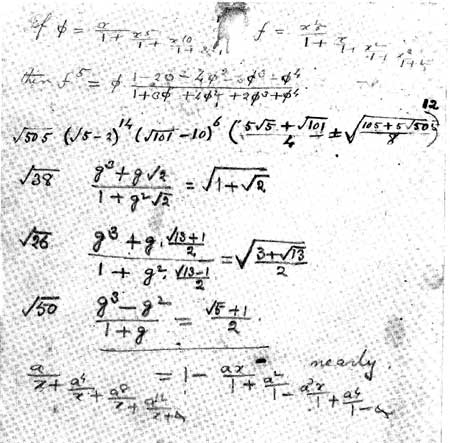 If φ = x/1 + x^5/1 + x^10/1 + f = x^(1/5)/1 + x/1 + x^2/1 + x^3/1 +
then f^5 = φ (1 - 2φ + 4φ^2 - 3φ^3 + φ^4)/(1 + 3φ + 4φ^2 + 2φ^3 + φ^4)
√505 (√5 - 2)^14 (√101 - 10)^6 ((5√5 + √101)/4 ± √((105 + 5√505)/8))^12
√38 (g^3 + g√2)/(1 + g^2√2) = √(1 + √2)
√26 (g^3 + g. (√13 + 1)/2)/(1 + g^2. (√13 - 1)/2) = √((3 + √13)/2)
√50 (g^3 - g^2)/(1 + g) = (√5 + 1)/2.
a/x + a^4/x + a^8/x + a^12/x + = 1 - ax/1 + a^2/1 - a^3x/1 + a^4/1 - nearly.